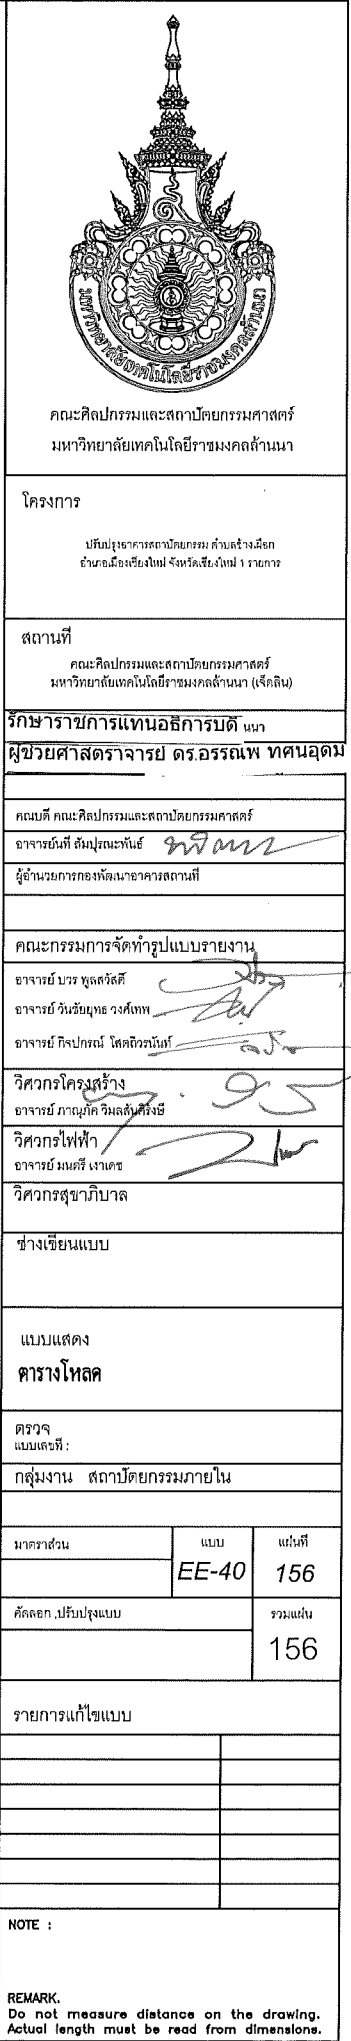 มหาวิทยาลัยเทคโนโลยีราชมงคลล้านนา
คณะศิลปกรรมและสถาปัตยกรรมศาสตร์
มหาวิทยาลัยเทคโนโลยีราชมงคลล้านนา
โครงการ
ปรับปรุงอาคารสถาปัตยกรรม ตำบลช้างเผือก
อำเภอเมืองเชียงใหม่ จังหวัดเชียงใหม่ 1 รายการ
สถานที่
คณะศิลปกรรมและสถาปัตยกรรมศาสตร์
มหาวิทยาลัยเทคโนโลยีราชมงคลล้านนา (เจ็ดลิน)
รักษาราชการแทนอธิการบดี นนา
ผู้ช่วยศาสตราจารย์ ดร.อรรณพ ทัศนอุดม
คณบดี คณะศิลปกรรมและสถาปัตยกรรมศาสตร์
อาจารย์นที สัมปุรณะพันธ์
ผู้อำนวยการกองพัฒนาอาคารสถานที่
คณะกรรมการจัดทำรูปแบบรายงาน
อาจารย์ บวร พูลสวัสดี
อาจารย์ วันชัยยุทธ วงค์เทพ
อาจารย์ กิจปกรณ์
วิศวกรโครงสร้าง
อาจารย์ ภาณุภัค
วิศวกรไฟฟ้า
อาจารย์ มนตรี เงาเดช
วิศวกรสุขาภิบาล
ช่างเขียนแบบ
แบบแสดง
ตารางโหลด
ตรวจ
แบบเลขที่ :
กลุ่มงาน สถาปัตยกรรมภายใน
มาตราส่วน แบบ แผ่นที่
EE-40 156
คัดลอก ,ปรับปรุงแบบ รวมแผ่น
156
รายการแก้ไขแบบ
NOTE :
REMARK.
Do not measure distance on the drawing.
Actual length must be read from dimensions.